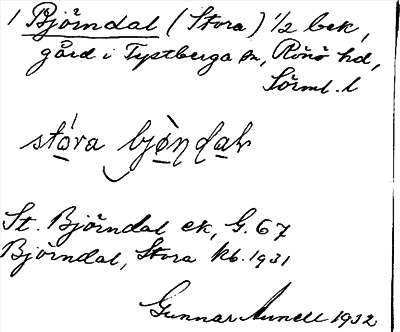 1 Björndal (Stora) 1/2 bek,
gård i Tystberga sn, Rönö hd,
Sörml. l
stora bjö̀ṇdaḷ
St. Björndal ek, G. 67
Björndal, Stora Kb. 1931
Gunnar Aunell 1932